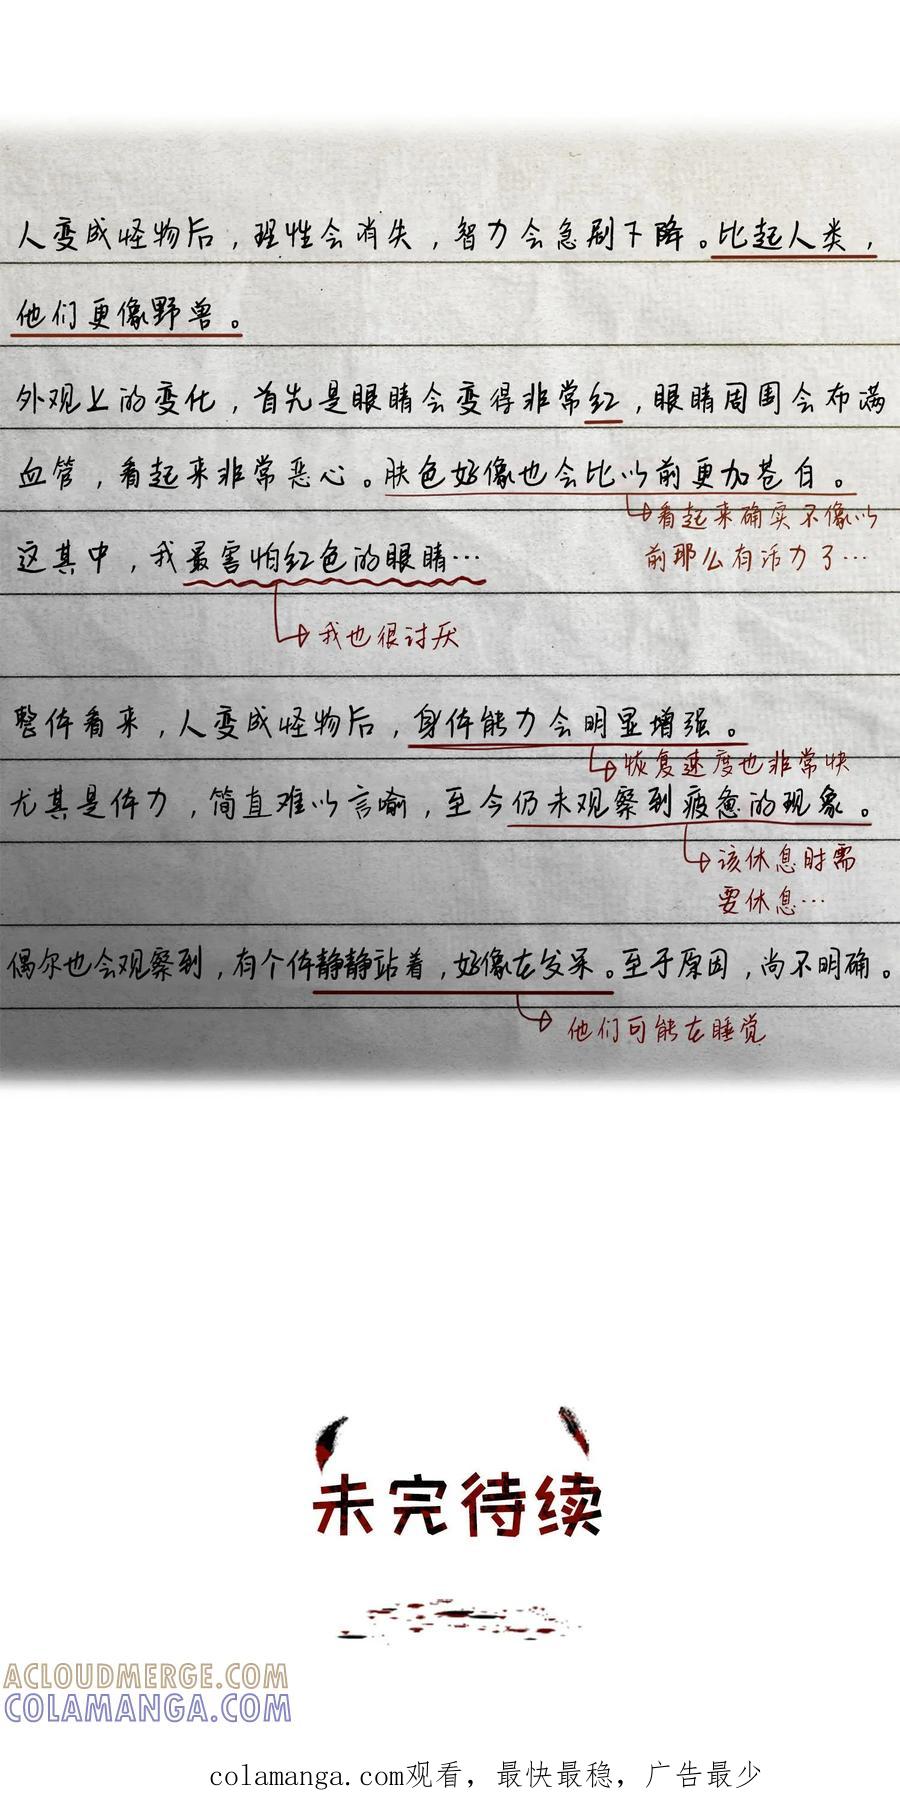 人变成怪物后，理性会消失，智力会急剧下降。比起人类，
他们更像野兽。
外观上的变化，首先是眼睛会变得非常红，眼睛周围会布满
血管，看起来非常恶心。肤色好像也会比以前更加苍白。
看起来确实不像以
前那么有活力了…
这其中，我最害怕红色的眼睛…
我也很讨厌
整体看来，人变成怪物后，身体能力会明显增强。
恢复速度也非常快
尤其是体力，简直难以言喻，至今仍未观察到疲惫的现象。
该休息时需
要休息…
偶尔也会观察到，有个体静静站着，好像在发呆。至于原因，尚不明确。
他们可能在睡觉
未完待续
ACLOUDMERGE.COM
COLAMANGA.COM
colamanga.com观看，最快最稳，广告最少